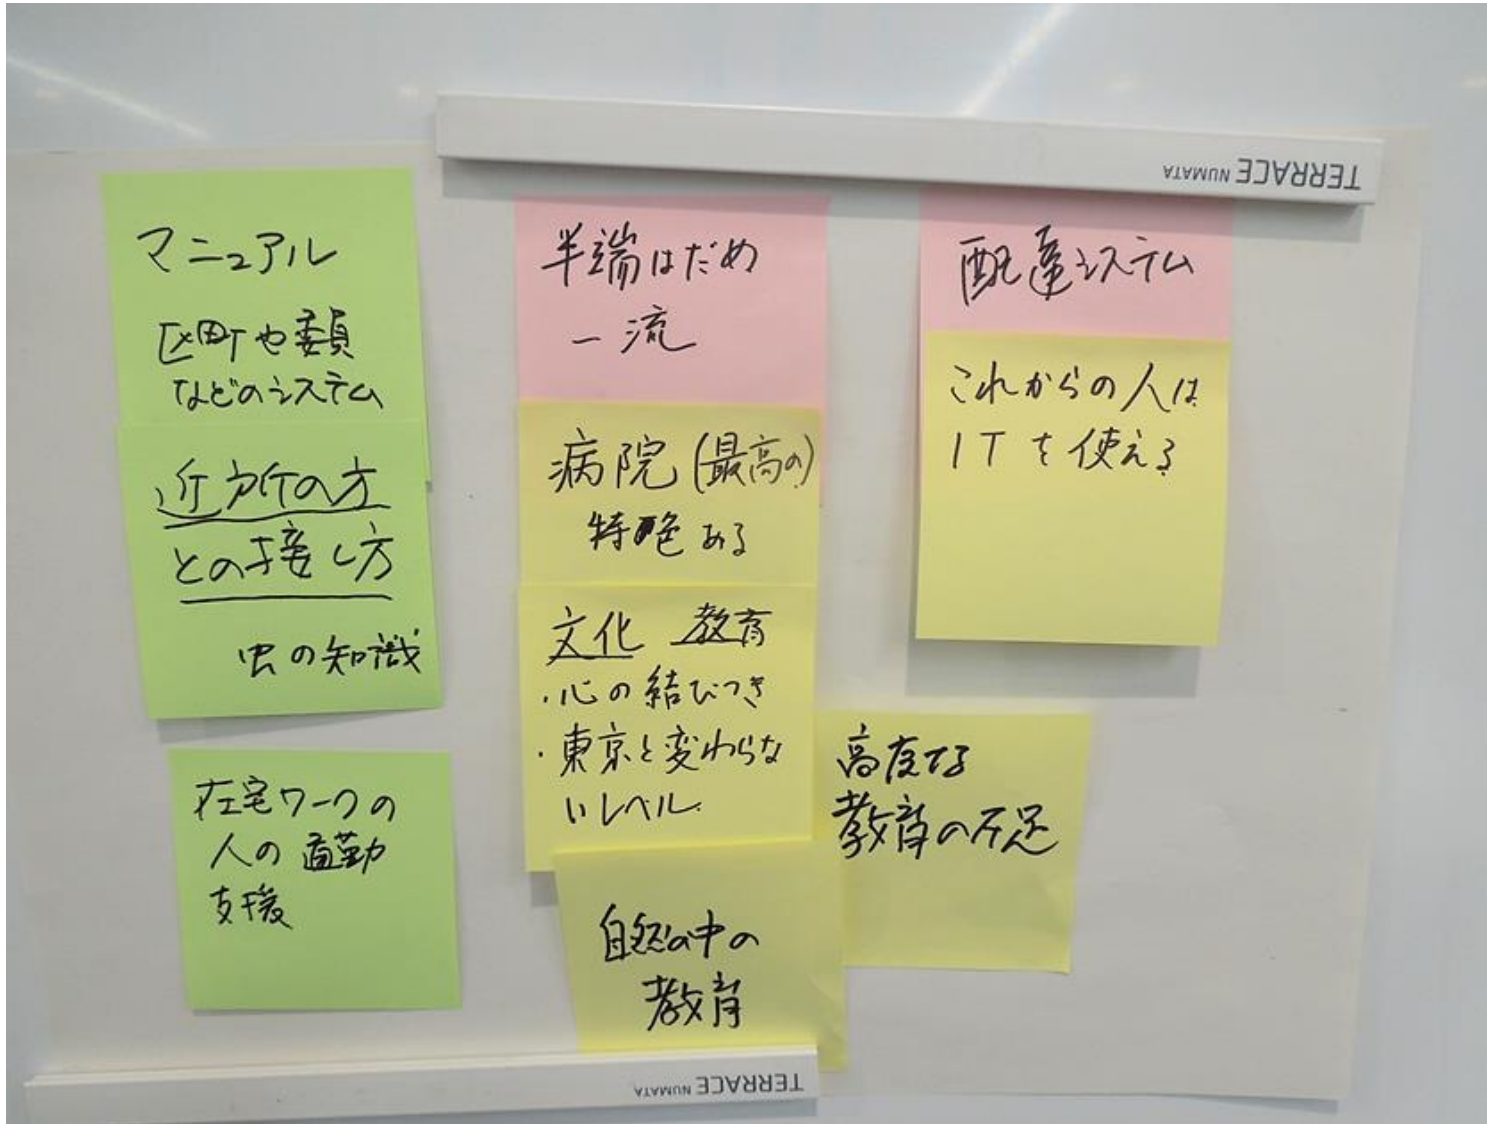 TERRACE NUMATA
マニュアル
区町や委員
などのシステム
近所の方
との接し方
虫の知識
在宅ワークの
人の通勤
支援
半端はだめ
一流
病院(最高の)
特色ある
文化 教育
・心の結びつき
・東京と変わらな
いレベル
自然の中の
教育
配達システム
これからの人は
ITを使える
高度な
教育の不足
TERRACE NUMATA